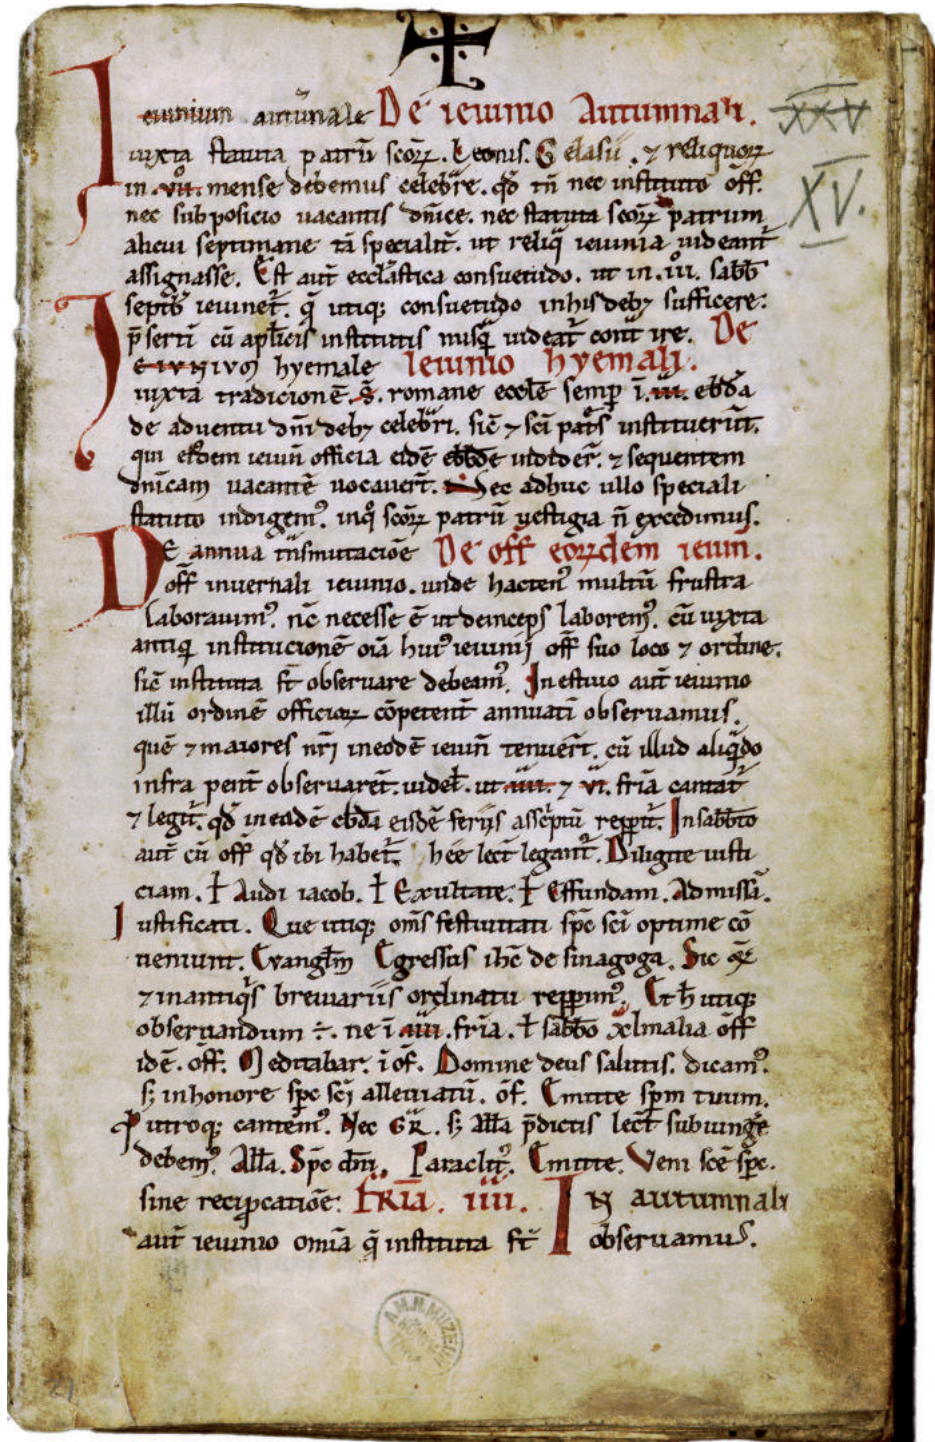 Ieiunium autūnale De ieiunio Autumnali. XXV
iuxta statuta patrū scōꝝ. Leonis. Gelasii. ⁊ reliquoꝝ XV.
in .vii°. mense debemus celebͬre. qđ tn̄ nec instituto off̄.
nec subposicio uacantis dn̄ice. nec statuta scōꝝ patrum
alicui septimane tā specialit̄. ut reliq̄ ieiunia uideant᷑
assignasse. Est aut̄ eccl̄astica consuetudo. ut in .iii°. sabb̄
septb̄ ieiunet᷑. q̄ utiq; consuetudo in his debꝫ sufficere:
p̄sertī cū apl̄icis institutis nusq̄ uideat᷑ cont̄ ire. De
Eiuniū hyemale Ieiunio hyemali.
iuxta tradicionē s̄. romane eccl̄e semp ī .iii. ebd̄a
de aduentu dn̄i debꝫ celebͬri. sic̄ ⁊ sc̄i patͬs instituerūt.
qui eıͦdem ieiun̄ officia eidē ebd̄e ⁊ sequentem
dn̄icam uacantē uocauer̄t. Nec adhuc ullo speciali
statuto indigem᷒. in qͦ scōꝝ patrū uestigia n̄ excedimus.
De annua tͣnsmutacōe De off̄ eoꝝdem ieiun̄.
off̄ inuernali ieiunio. unde hacten᷒ multū frustra
laborauim᷒. nc̄ necesse ē ut deinceps laborem᷒. cū iuxta
antiq̄ institucionē oīa hui᷒ ieiunij off̄ suo loco ⁊ ordine.
sic̄ instituta st̄ obseruare debeam᷒. In estiuo aut̄ ieiunio
illū ordinē officioꝝ cōpetent̄ annuatī obseruamus.
quē ⁊ maiores nr̄i in eodē ieiun̄ tenuer̄t. cū illud aliqͣdo
infra pent̄ obseruaret̄. uidel̄. ut .iiii. ⁊ vi. fr̄ia cantat᷑
⁊ legit᷑. qđ in eadē ebd̄a eisdē feriis assc̄ptū repp̄it᷑. In sabb̄to
aut̄ cū off̄ qđ ibi habet᷑. hee lect̄ legant᷑. Diligite iusti
ciam. ł Audi iacob. ł Exultate. ł Effundam. Ad missā.
Iustificati. Que utiq; om̄s festiuitati sp̄c sc̄i optime cō
ueniunt. Evangl̄m Egressus ih̄c de sinagoga. Sic
⁊ in antiqͥs breuiariis ordinatū repp̄im᷒. Et h̄ utiq;
obseruandum ÷. ne ī .iiii. fr̄ia. ł sabb̄o xl̄malia off̄
idē. off̄. Meditabar. ī of̄. Domine deus salutis. dicam᷒.
sꝫ in honore sp̄c sc̄i alleuiatū. of̄. Emitte sp̄m tuum.
utroq; cantem᷒. Nec GR̄. sꝫ All̄a p̄dictis lect̄ subiungē
debem᷒. All̄a. Sp̄c dn̄i. Paraclit᷒. Emitte. Veni sc̄e sp̄c.
sine recip̄catiōe. FR̄IA. IIII. In autumnali
aut̄ ieiunio omīa q̄ instituta st̄ obseruamus.